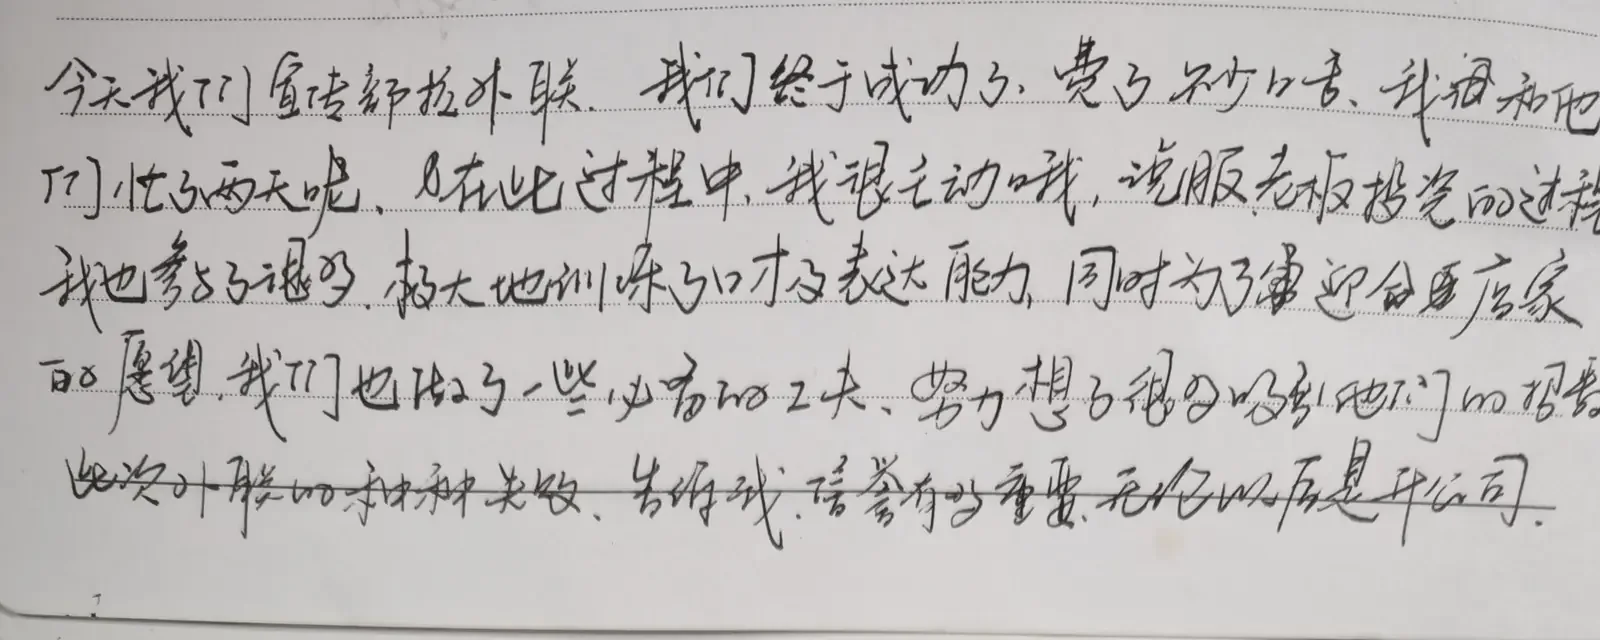 今天我们宣传部拉外联.我们终于成功了、费了不少口舌、我和他
们忙了两天呢、在此过程中,我很主动哦,说服老板投资的过程
我也参与了很多.极大地训练了口才及表达能力,同时为了迎合店家
的愿望,我们也做了一些必备的工夫、努力想了很多吸引他们的招数
此次外联的种种失败、告诉我、信誉有多重要、无论以后是开公司.